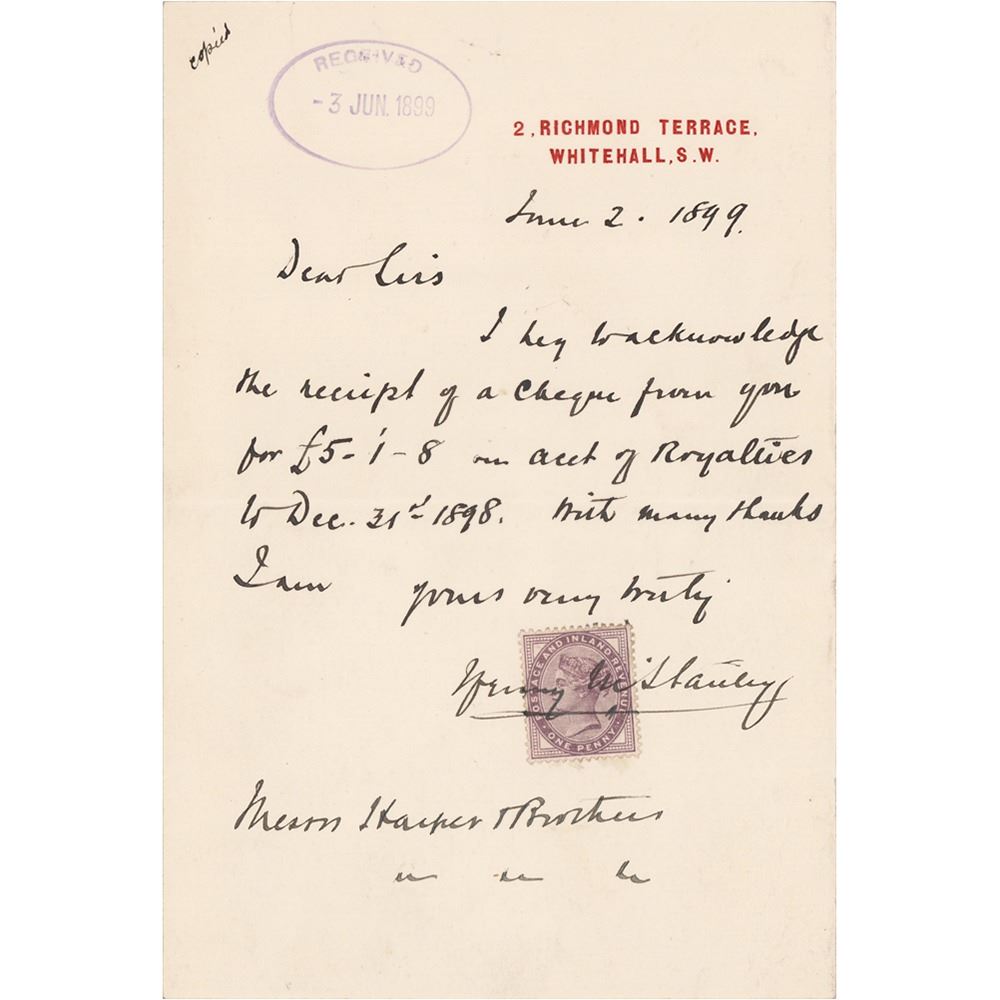 copied
RECEIVED
-3 JUN. 1899
2, RICHMOND TERRACE,
WHITEHALL, S.W.
June 2. 1899.
Dear Sirs
I beg to acknowledge
the receipt of a cheque from you
for £5-1-8 on acct of Royalties
to Dec. 31st 1898. With many thanks
I am yours very truly
Henry M Stanley
POSTAGE AND INLAND REVENUE
ONE PENNY
Messrs Harper & Brothers